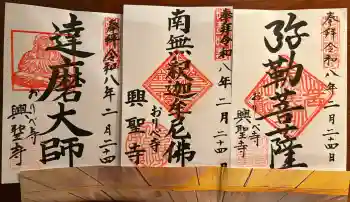 奉拝 令和八年二月二十四日
弥勒菩薩
おりべ寺
興聖寺
奉拝 令和八年二月二十四日
南無釈迦牟尼佛
おりべ寺
興聖寺
奉拝 令和八年二月二十四日
達磨大師
おりべ寺
興聖寺